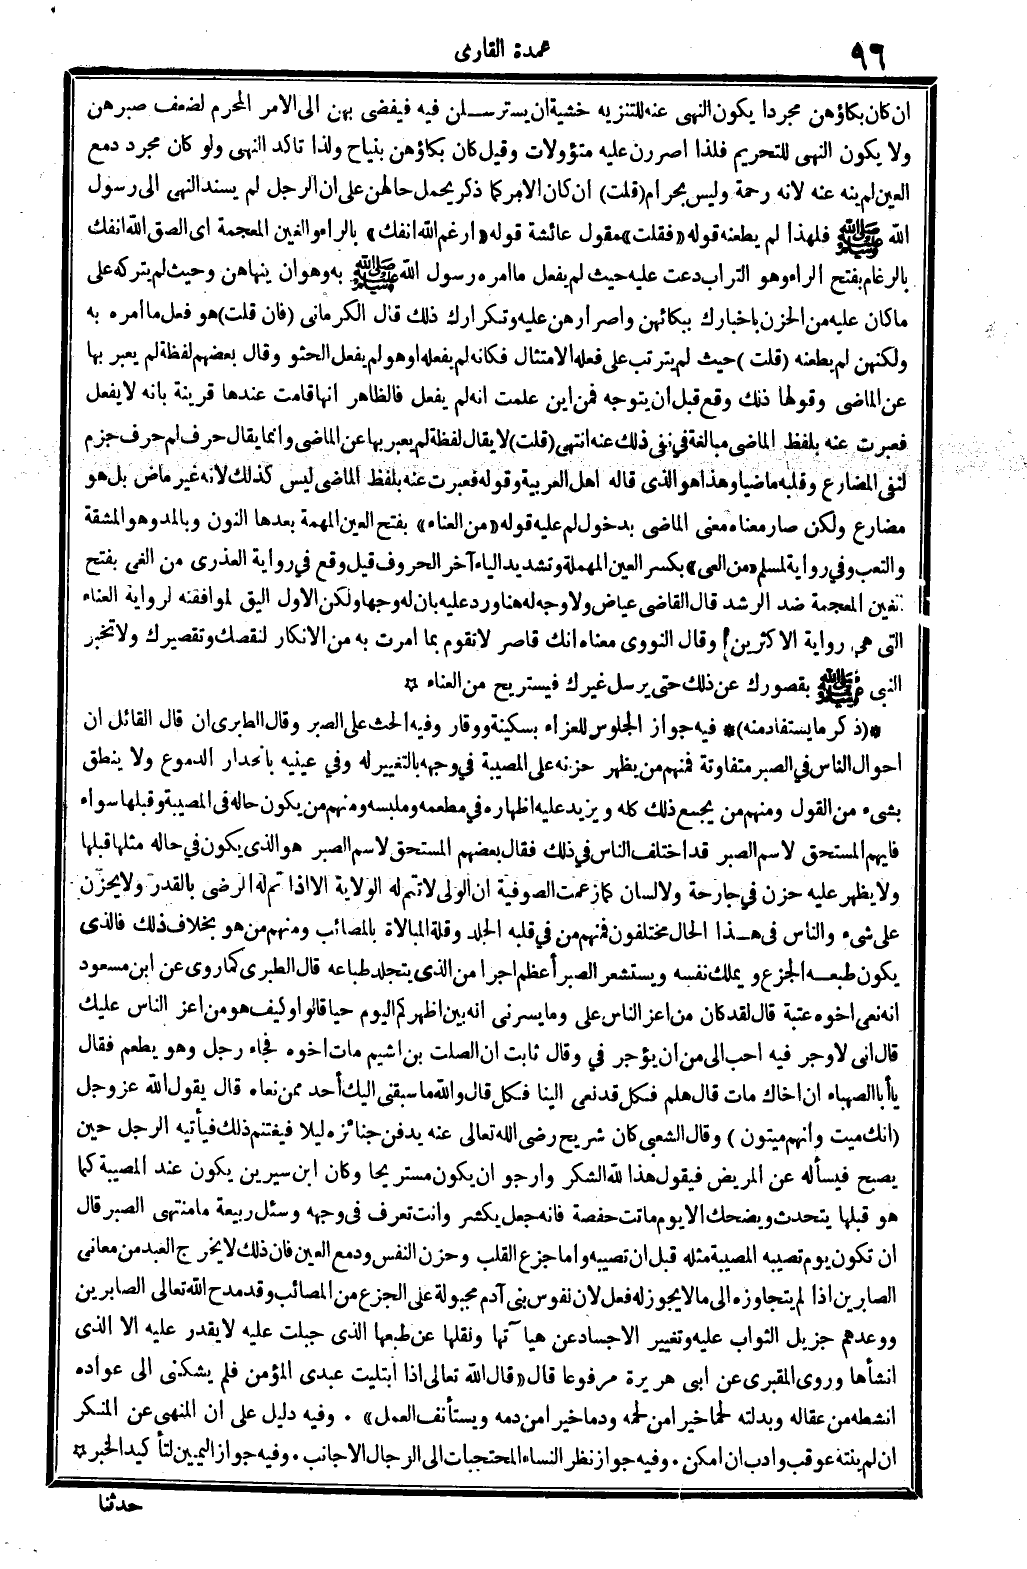 ٩٦
عمدة القارى
ان كان بكاؤهن مجردا يكون النهى عنه للتنزيه خشية ان يسترسلن فيه فيفضى بهن الى الامر المحرم لضعف صبرهن
ولا يكون النهى للتحريم فلذا اصررن عليه متؤولات وقيل كان بكاؤهن بنياح ولذا تاكد النهى ولو كان مجرد دمع
العين لم ينه عنه لانه رحمة وليس بحرام (قلت) ان كان الامر كما ذكر يحمل حالهن على ان الرجل لم يسند النهى الى رسول
الله ﷺ فلهذا لم يطعنه قوله «فقلت» مقول عائشة قوله «ارغم الله انفك» بالراء والغين المعجمة اى الصق الله انفك
بالرغام بفتح الراء وهو التراب دعت عليه حيث لم يفعل ما امره رسول الله ﷺ به وهو ان ينهاهن وحيث لم يتركه على
ما كان عليه من الحزن باخبارك ببكائهن واصرارهن عليه وتكرارك ذلك قال الكرمانى (فان قلت) هو فعل ما امره به
ولكنهن لم يطعنه (قلت) حيث لم يترتب على فعله الامتثال فكانه لم يفعله او هو لم يفعل الحثو وقال بعضهم لفظة لم يعبر بها
عن الماضى وقولها ذلك وقع قبل ان يتوجه فمن اين علمت انه لم يفعل فالظاهر انها قامت عندها قرينة بانه لا يفعل
فعبرت عنه بلفظ الماضى مبالغة فى نفى ذلك عنه انتهى (قلت) لا يقال لفظة لم يعبر بها عن الماضى وانما يقال حرف لم حرف جزم
لنفى المضارع وقلبه ماضيا وهذا هو الذى قاله اهل العربية وقوله فعبرت عنه بلفظ الماضى ليس كذلك لانه غير ماض بل هو
مضارع ولكن صار معناه معنى الماضى بدخول لم عليه قوله «من العناء» بفتح العين المهمة بعدها النون وبالمد وهو المشقة
والتعب وفى رواية لمسلم «من العى» بكسر العين المهملة وتشديد الياء آخر الحروف قيل وقع فى رواية العذرى من الغى بفتح
الغين المعجمة ضد الرشد قال القاضى عياض ولا وجه له هنا ورد عليه بان له وجها ولكن الاول اليق لموافقته لرواية العناء
التى هى رواية الاكثرين وقال النووى معناه انك قاصر لا تقوم بما امرت به من الانكار لنقصك وتقصيرك ولا تخبر
النبى ﷺ بقصورك عن ذلك حتى يرسل غيرك فيستريح من العناء ☆
*(ذكر ما يستفاد منه)* فيه جواز الجلوس للعزاء بسكينة ووقار وفيه الحث على الصبر وقال الطبرى ان قال القائل ان
احوال الناس فى الصبر متفاوتة فمنهم من يظهر حزنه على المصيبة فى وجهه بالتغيير له وفى عينيه بانحدار الدموع ولا ينطق
بشىء من القول ومنهم من يجمع ذلك كله ويزيد عليه اظهاره فى مطعمه وملبسه ومنهم من يكون حاله فى المصيبة وقبلها سواء
فايهم المستحق لاسم الصبر قد اختلف الناس فى ذلك فقال بعضهم المستحق لاسم الصبر هو الذى يكون فى حاله مثلها قبلها
ولا يظهر عليه حزن فى جارحة ولا لسان كما زعمت الصوفية ان الولى لا تتم له الولاية الا اذا تم له الرضى بالقدر ولا يحزن
على شىء والناس فى هذا الحال مختلفون فمنهم من فى قلبه الجلد وقلة المبالاة بالمصائب ومنهم من هو بخلاف ذلك فالذى
يكون طبعه الجزع ويملك نفسه ويستشعر الصبر أعظم اجرا من الذى يتجلد طباعه قال الطبرى كما روى عن ابن مسعود
انه نعى اخوه عتبة قال لقد كان من اعز الناس على وما يسرنى انه بين اظهركم اليوم حيا قالوا وكيف هو من اعز الناس عليك
قال انى لاوجر فيه احب الى من ان يؤجر فى وقال ثابت ان الصلت بن اشيم مات اخوه فجاء رجل وهو يطعم فقال
يا أبا الصهباء ان اخاك مات قال هلم فكل قد نعى الينا فكل قال والله ما سبقنى اليك أحد ممن نعاه قال يقول الله عز وجل
(انك ميت وانهم ميتون) وقال الشعبى كان شريح رضى الله تعالى عنه يدفن جنائزه ليلا فيغتنم ذلك فيأتيه الرجل حين
يصبح فيسأله عن المريض فيقول هذا لله الشكر وارجو ان يكون مستريحا وكان ابن سيرين يكون عند المصيبة كما
هو قبلها يتحدث ويضحك الا يوم ماتت حفصة فانه جعل يكشر وانت تعرف فى وجهه وسئل ربيعة ما منتهى الصبر قال
ان تكون يوم تصيبه المصيبة مثله قبل ان تصيبه واما جزع القلب وحزن النفس ودمع العين فان ذلك لا يخرج العبد من معانى
الصابرين اذا لم يتجاوزه الى ما لا يجوز له فعل لان نفوس بنى آدم مجبولة على الجزع من المصائب وقد مدح الله تعالى الصابرين
ووعدهم جزيل الثواب عليه وتغيير الاجساد عن هيآتها ونقلها عن طبعها الذى جبلت عليه لا يقدر عليه الا الذى
انشأها وروى المقبرى عن ابى هريرة مرفوعا قال «قال الله تعالى اذا ابتليت عبدى المؤمن فلم يشكنى الى عواده
انشطه من عقاله وبدلته لحما خيرا من لحمه ودما خيرا من دمه ويستأنف العمل» ٠ وفيه دليل على ان المنهى عن المنكر
ان لم ينته عوقب وادب ان امكن ٠ وفيه جواز نظر النساء المحتجبات الى الرجال الاجانب ٠ وفيه جواز اليمين لتأكيد الخبر ☆
حدثنا